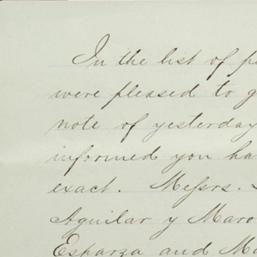 In the list of p
were pleased to g
note of yesterday
informed you ha
exact. Messrs.
Aguilar y Maro
Esparza and Ma